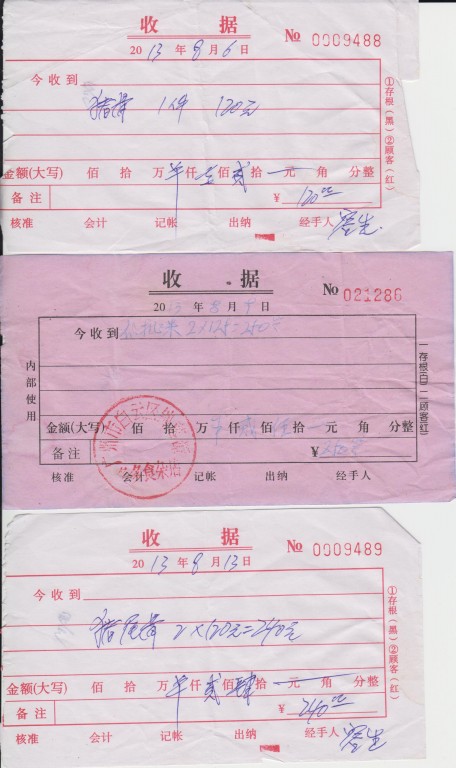 收 据
№ 0009488
2013年8月6日
今收到
猪骨 1件 120元
①存根（黑）②顾客（红）
金额(大写) 佰 拾 万 仟 壹佰 贰拾 元 角 分整
备注 ¥ 120.00
核准 会计 记帐 出纳 经手人
收 据
No 021286
2013年8月 日
今收到 2×125=250元
内部使用
一存根(白)二顾客(红)
金额(大写) 佰 拾 万 仟 佰 拾 元 角 分整
备注 ¥250元
核准 会计 记帐 出纳 经手人
收 据
№ 0009489
2013年8月13日
今收到
猪尾骨 2×120元=240元
①存根（黑）②顾客（红）
金额(大写) 佰 拾 万 仟 贰佰 肆拾 元 角 分整
备注 ¥ 240.00
核准 会计 记帐 出纳 经手人